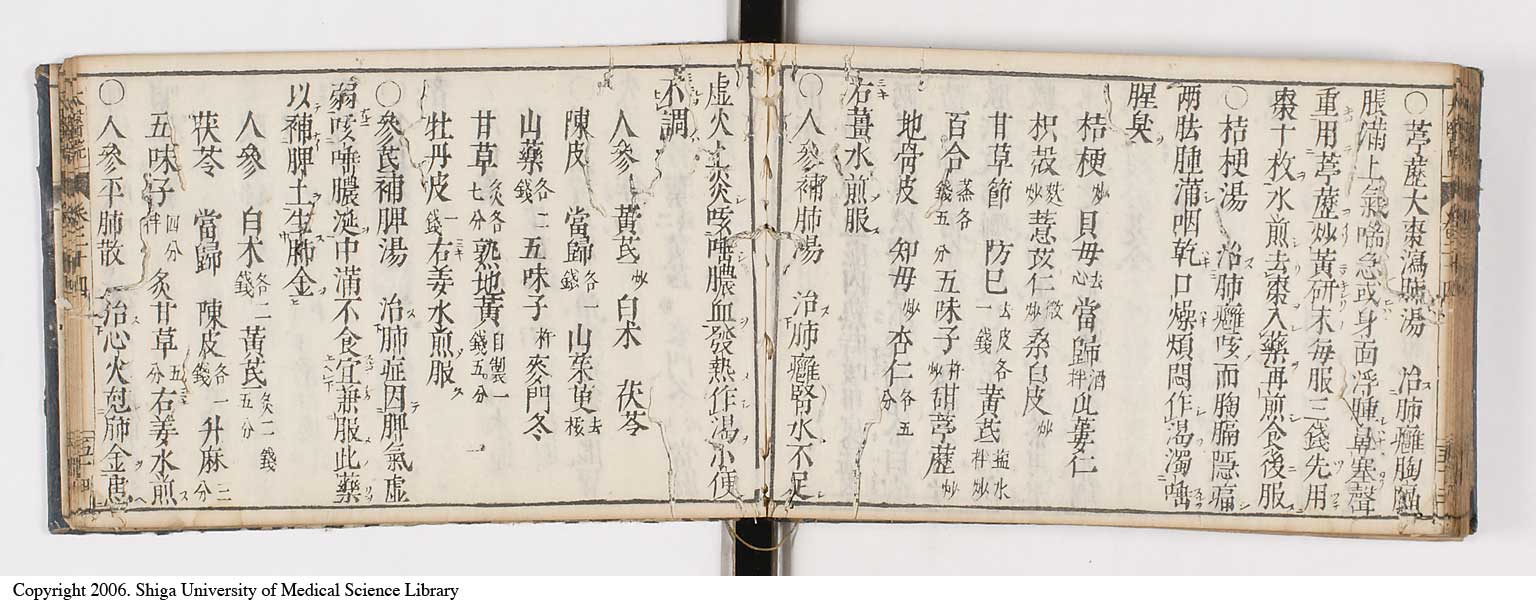 ○葶藶大棗瀉肺湯 治肺癰胸膈
脹滿上氣喘急或身面浮腫鼻塞聲
重用葶藶炒黃研末每服三錢先用
棗十枚水煎去棗入藥再煎食後服
○桔梗湯 治肺癰咳而胸膈隱痛
兩胠腫滿咽乾口燥煩悶作渴濁唾
腥臭
桔梗炒貝母去心當歸酒拌瓜蔞仁
枳殼麩炒薏苡仁微炒桑白皮炒
甘草節 防巳去皮各一錢黃芪鹽水拌炒
百合蒸各錢五分五味子杵炒甜葶藶炒
地骨皮 知母炒杏仁各五分
右薑水煎服
○人參補肺湯 治肺癰腎水不足
虛火上炎咳唾膿血發熱作渴小便
不調
人參 黃芪炒白朮 茯苓
陳皮 當歸各一錢山茱萸去核
山藥各二錢五味子杵麥門冬
甘草炙各七分熟地黃自製一錢五分
牡丹皮一錢右姜水煎服
○參芪補脾湯 治肺症因脾氣虛
弱咳唾膿涎中滿不食宜兼服此藥
以補脾土生肺金
人參 白朮各二錢黃芪炙二錢五分
茯苓 當歸 陳皮各一錢升麻三分
五味子四分杵炙甘草五分右姜水煎
○人參平肺散 治心火尅肺金患